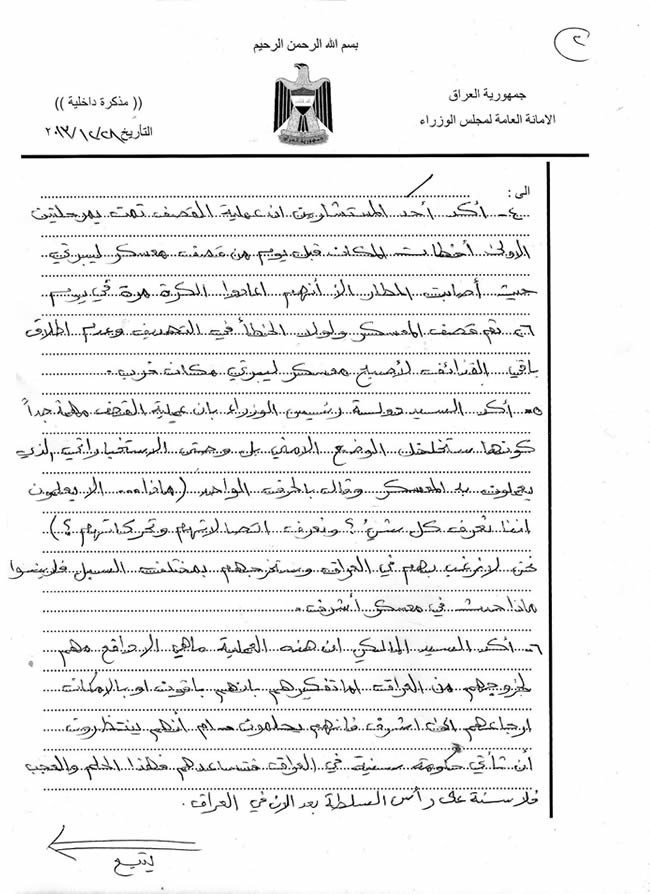 ٢
بسم الله الرحمن الرحيم
جمهورية العراق
الامانة العامة لمجلس الوزراء
(( مذكرة داخلية ))
التاريخ ٢٠١٣/١٢/٢٨
الى :
٤- أكد أحد المستشارين ان عملية القصف تمت بمرحلتين
الاولى أخطأت المكان قبل يوم من قصف معسكر ليبرتي
حيث أصابت المطار الا أنهم اعادوا الكرة مرة في يوم
٢٦ تم قصف المعسكر ولولا الخطأ في التهديف وعدم اطلاق
باقي القذائف لأصبح معسكر ليبرتي مكان خرب .
٥- أكد السيد دولة رئيس الوزراء بان عملية القصف مهمة جداً
كونها ستخلخل الوضع الامني بل وحتى الاستخباراتي الذي
يعملون به المعسكر وقال بالحرف الواحد (ماذا... الا يعلمون
اننا نعرف كل شئ ؟ ونعرف اتصالاتهم وتحركاتهم ؟)
نحن لا نرغب بهم في العراق وسنخرجهم بمختلف السبل فلا ينسوا
ماذا حدث في معسكر أشرف .
٦- أكد السيد المالكي ان هذه العملية ماهي الا دافع مهم
لخروجهم من العراق اما تفكيرهم بانهم باقون او بالامكان
ارجاعهم الى اشرف فانهم يحلمون أنهم ينتظرون
أن تأتي حكومة سنية في العراق فتساعدهم فهذا الحلم والعجب
فلا سنة على رأس السلطة بعد الان في العراق .
يتبع